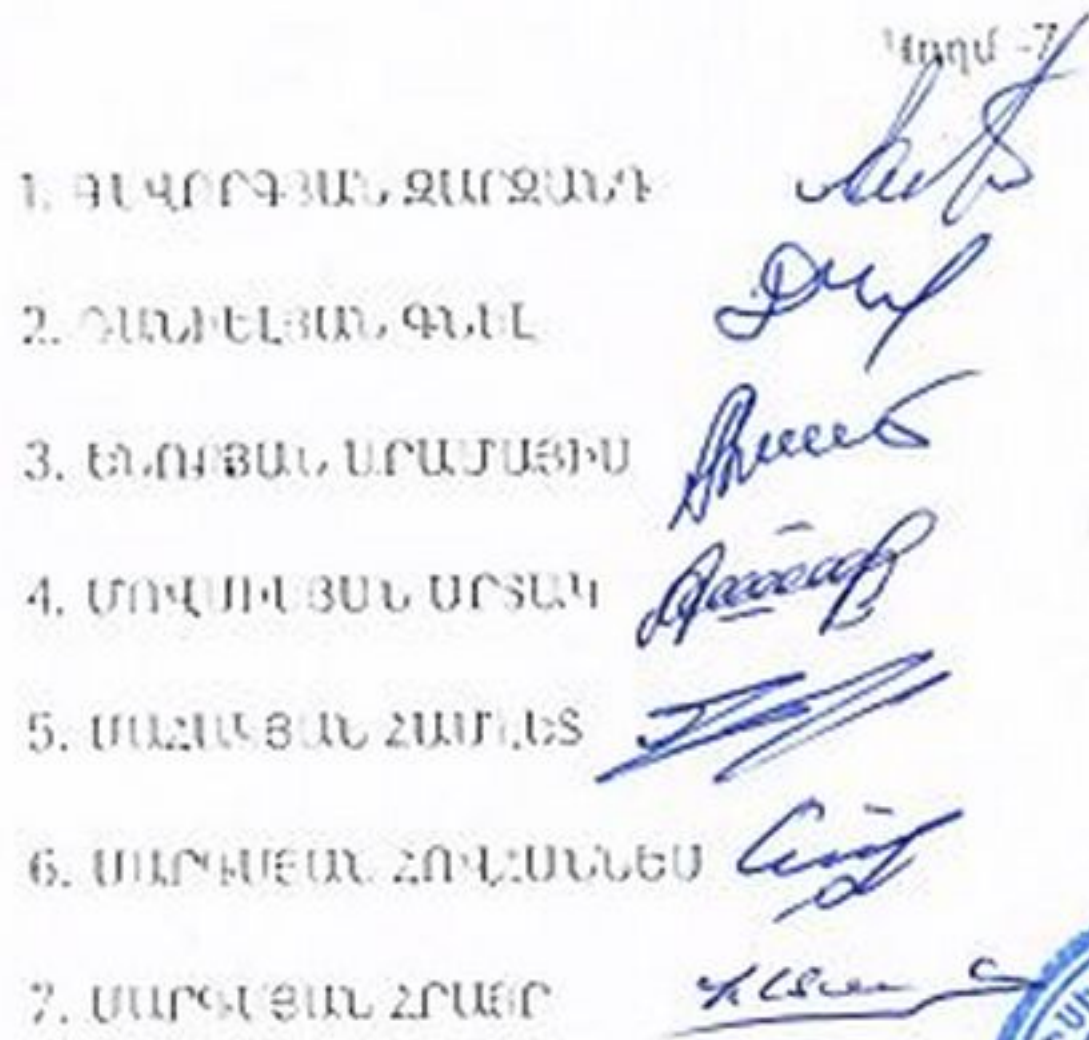 Կողմ -7
1. ԳԵՎՈՐԳՅԱՆ ԶԱՐԶԱՆԴ
2. ԴԱՆԻԵԼՅԱՆ ԳՆԵԼ
3. ԵՆՈՔՅԱՆ ԱՐԱՄԱՅԻՍ
4. ՄՈՎՍԻՍՅԱՆ ԱՐՏԱԿ
5. ՍԱՀԱԿՅԱՆ ՀԱՄԼԵՏ
6. ՍԱՐԳՍՅԱՆ ՀՈՎՀԱՆՆԵՍ
7. ՍԱՐԳՍՅԱՆ ՀՐԱՅՐ